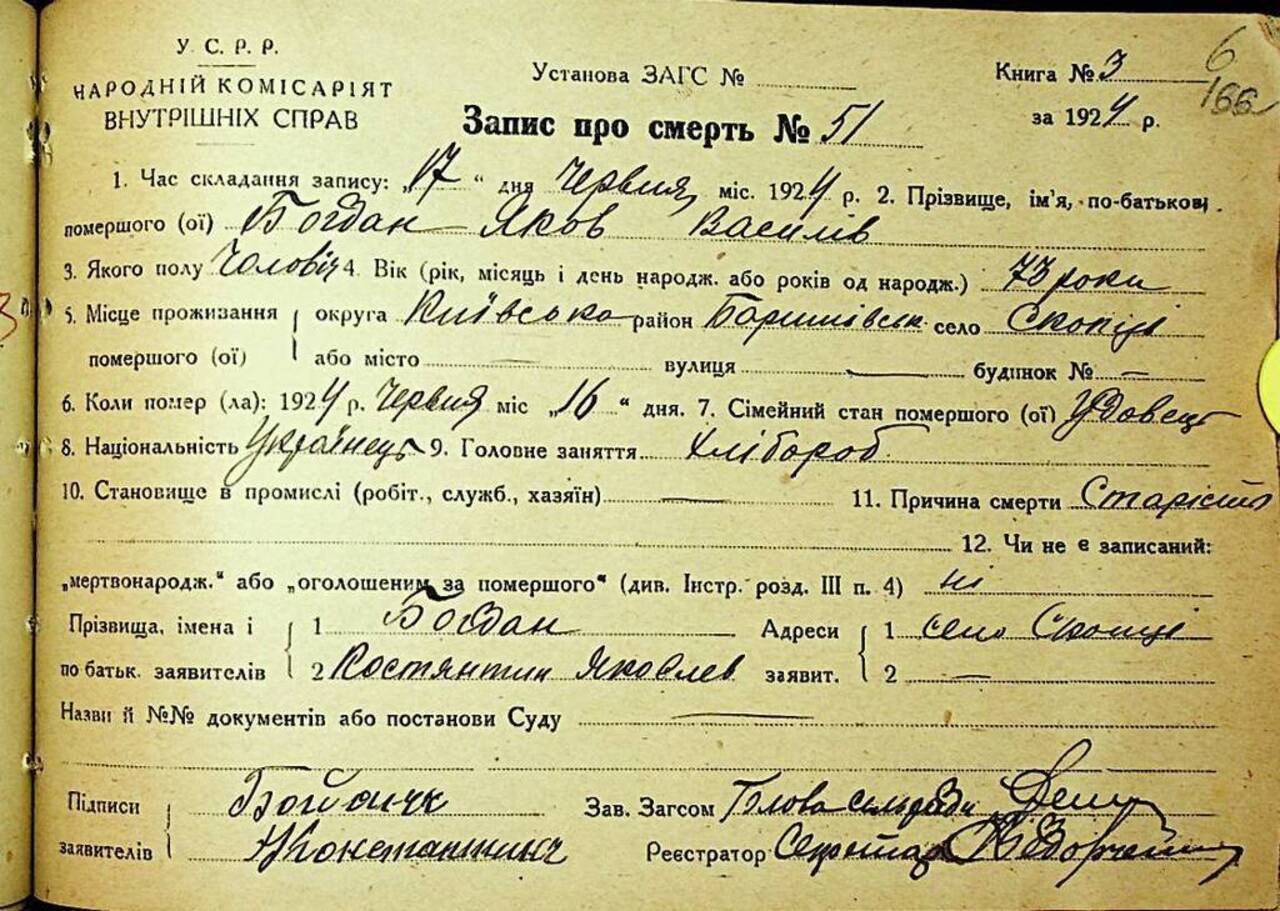 У. С. Р. Р.
НАРОДНІЙ КОМІСАРІЯТ
ВНУТРІШНІХ СПРАВ
Установа ЗАГС №
Книга № 3
6
166
за 1924 р.
Запис про смерть № 51
1. Час складання запису: „17“ дня Червня міс. 1924 р. 2. Прізвище, ім'я, по-батькові
помершого (ої) Богдан Яков Василів
3. Якого полу Чоловіч 4. Вік (рік, місяць і день народж. або років од народж.) 73 роки
5. Місце проживання округа Київська район Баришівськ село Скопці
помершого (ої) або місто — вулиця — будинок № —
6. Коли помер (ла): 1924 р. Червня міс „16“ дня. 7. Сімейний стан помершого (ої) Удовець
8. Національність Українець 9. Головне заняття Хлібороб
10. Становище в промислі (робіт., служб., хазяїн) — 11. Причина смерти Старість
12. Чи не є записаний:
„мертвонародж.“ або „оголошеним за помершого“ (див. Інстр. розд. III п. 4) ні
Прізвища, імена і 1 Богдан Адреси 1 село Скопці
по батьк. заявителів 2 Костянтин Яковлев заявит. 2 —
Назви й №№ документів або постанови Суду —
Підписи Зав. Загсом Голова сільради
заявителів Реєстратор Секретар